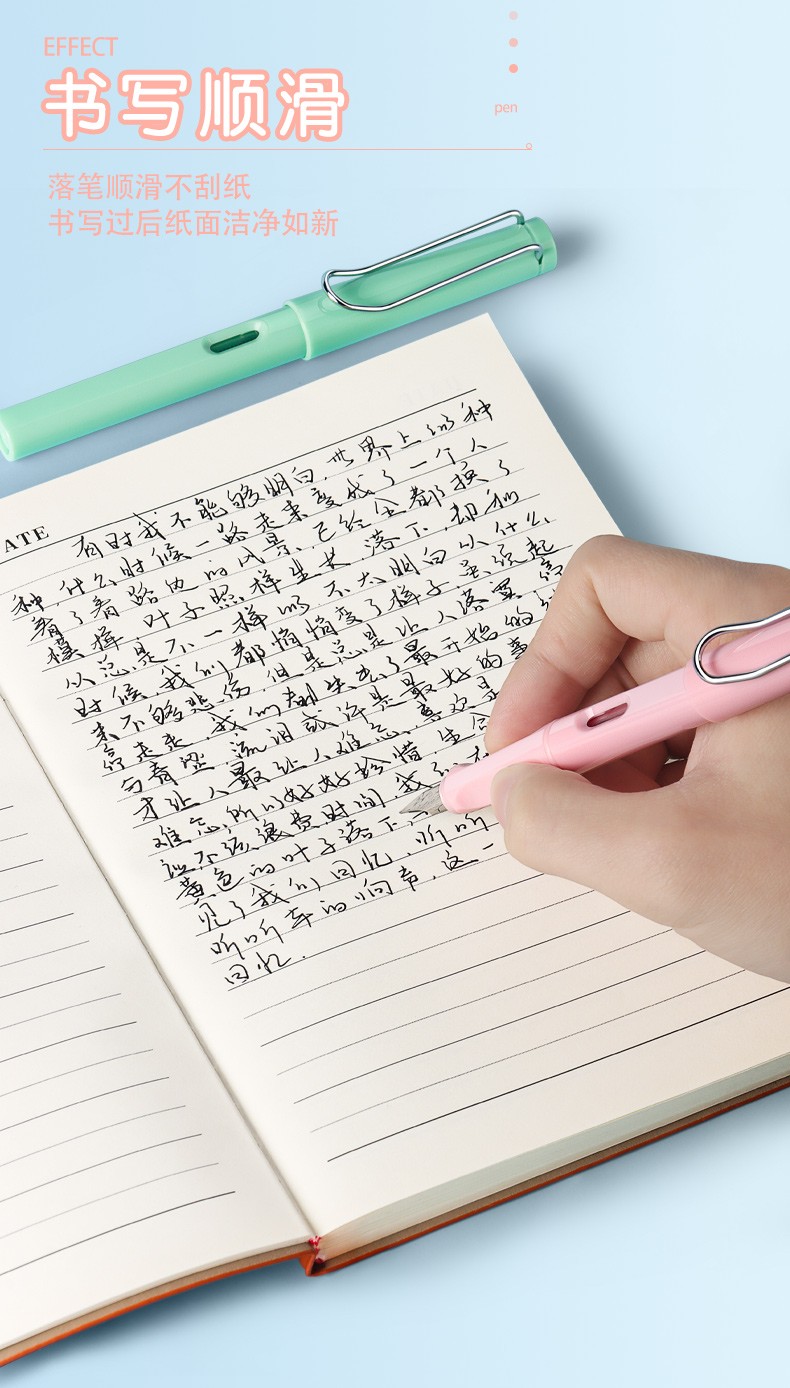 EFFECT
书写顺滑
pen
落笔顺滑不刮纸
书写过后纸面洁净如新
ATE
有时我不能够明白,世界上的种
种,什么时候一路走来变成了一个人
看了看路边的风景,已经全都换了
模样,叶子照样生长,落下,却和
从总是不一样的,不太明白从什么
时候,我们都悄悄变了样子,虽说起
来不够悲伤,但是总是让人落寞,停
停走走,我们都失去了最开始的
与希望,流泪或许是最好的事
才让人最让人难忘,喜欢是
难忘,所以好好珍惜,生命
认不该浪费时间,我们
黄色的叶子落下
见了我们回忆,听听
听听车的响声,这一
回忆.